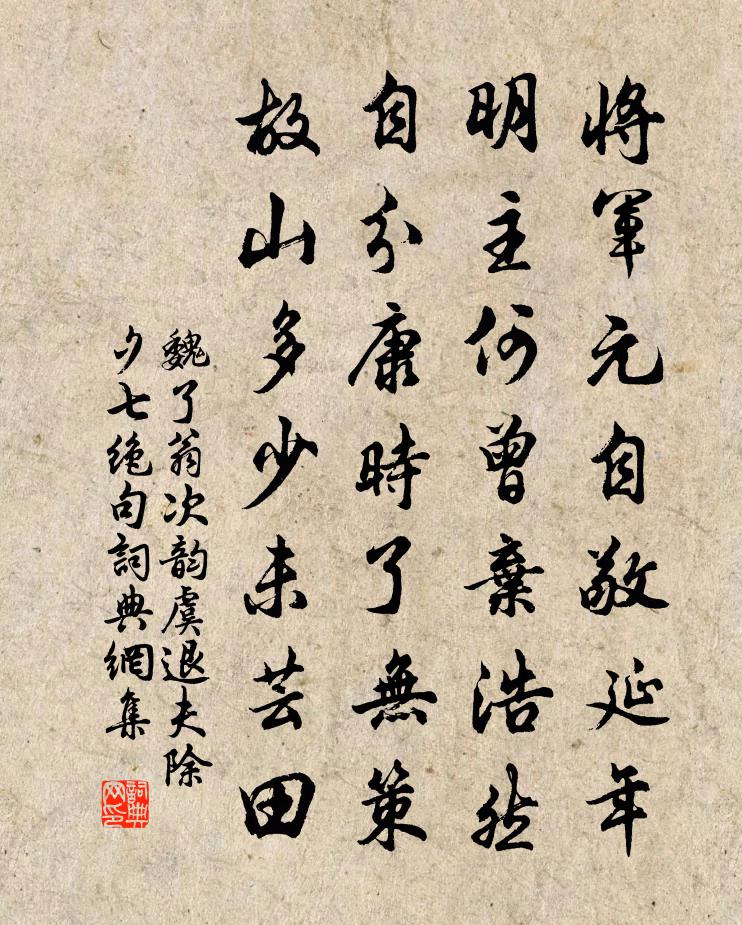 將軍元自敬延年
明主何曾棄浩然
自分康時了無策
故山多少未芸田
魏了翁次韵虞退夫除
夕七绝句詞典網集
詞典
网印